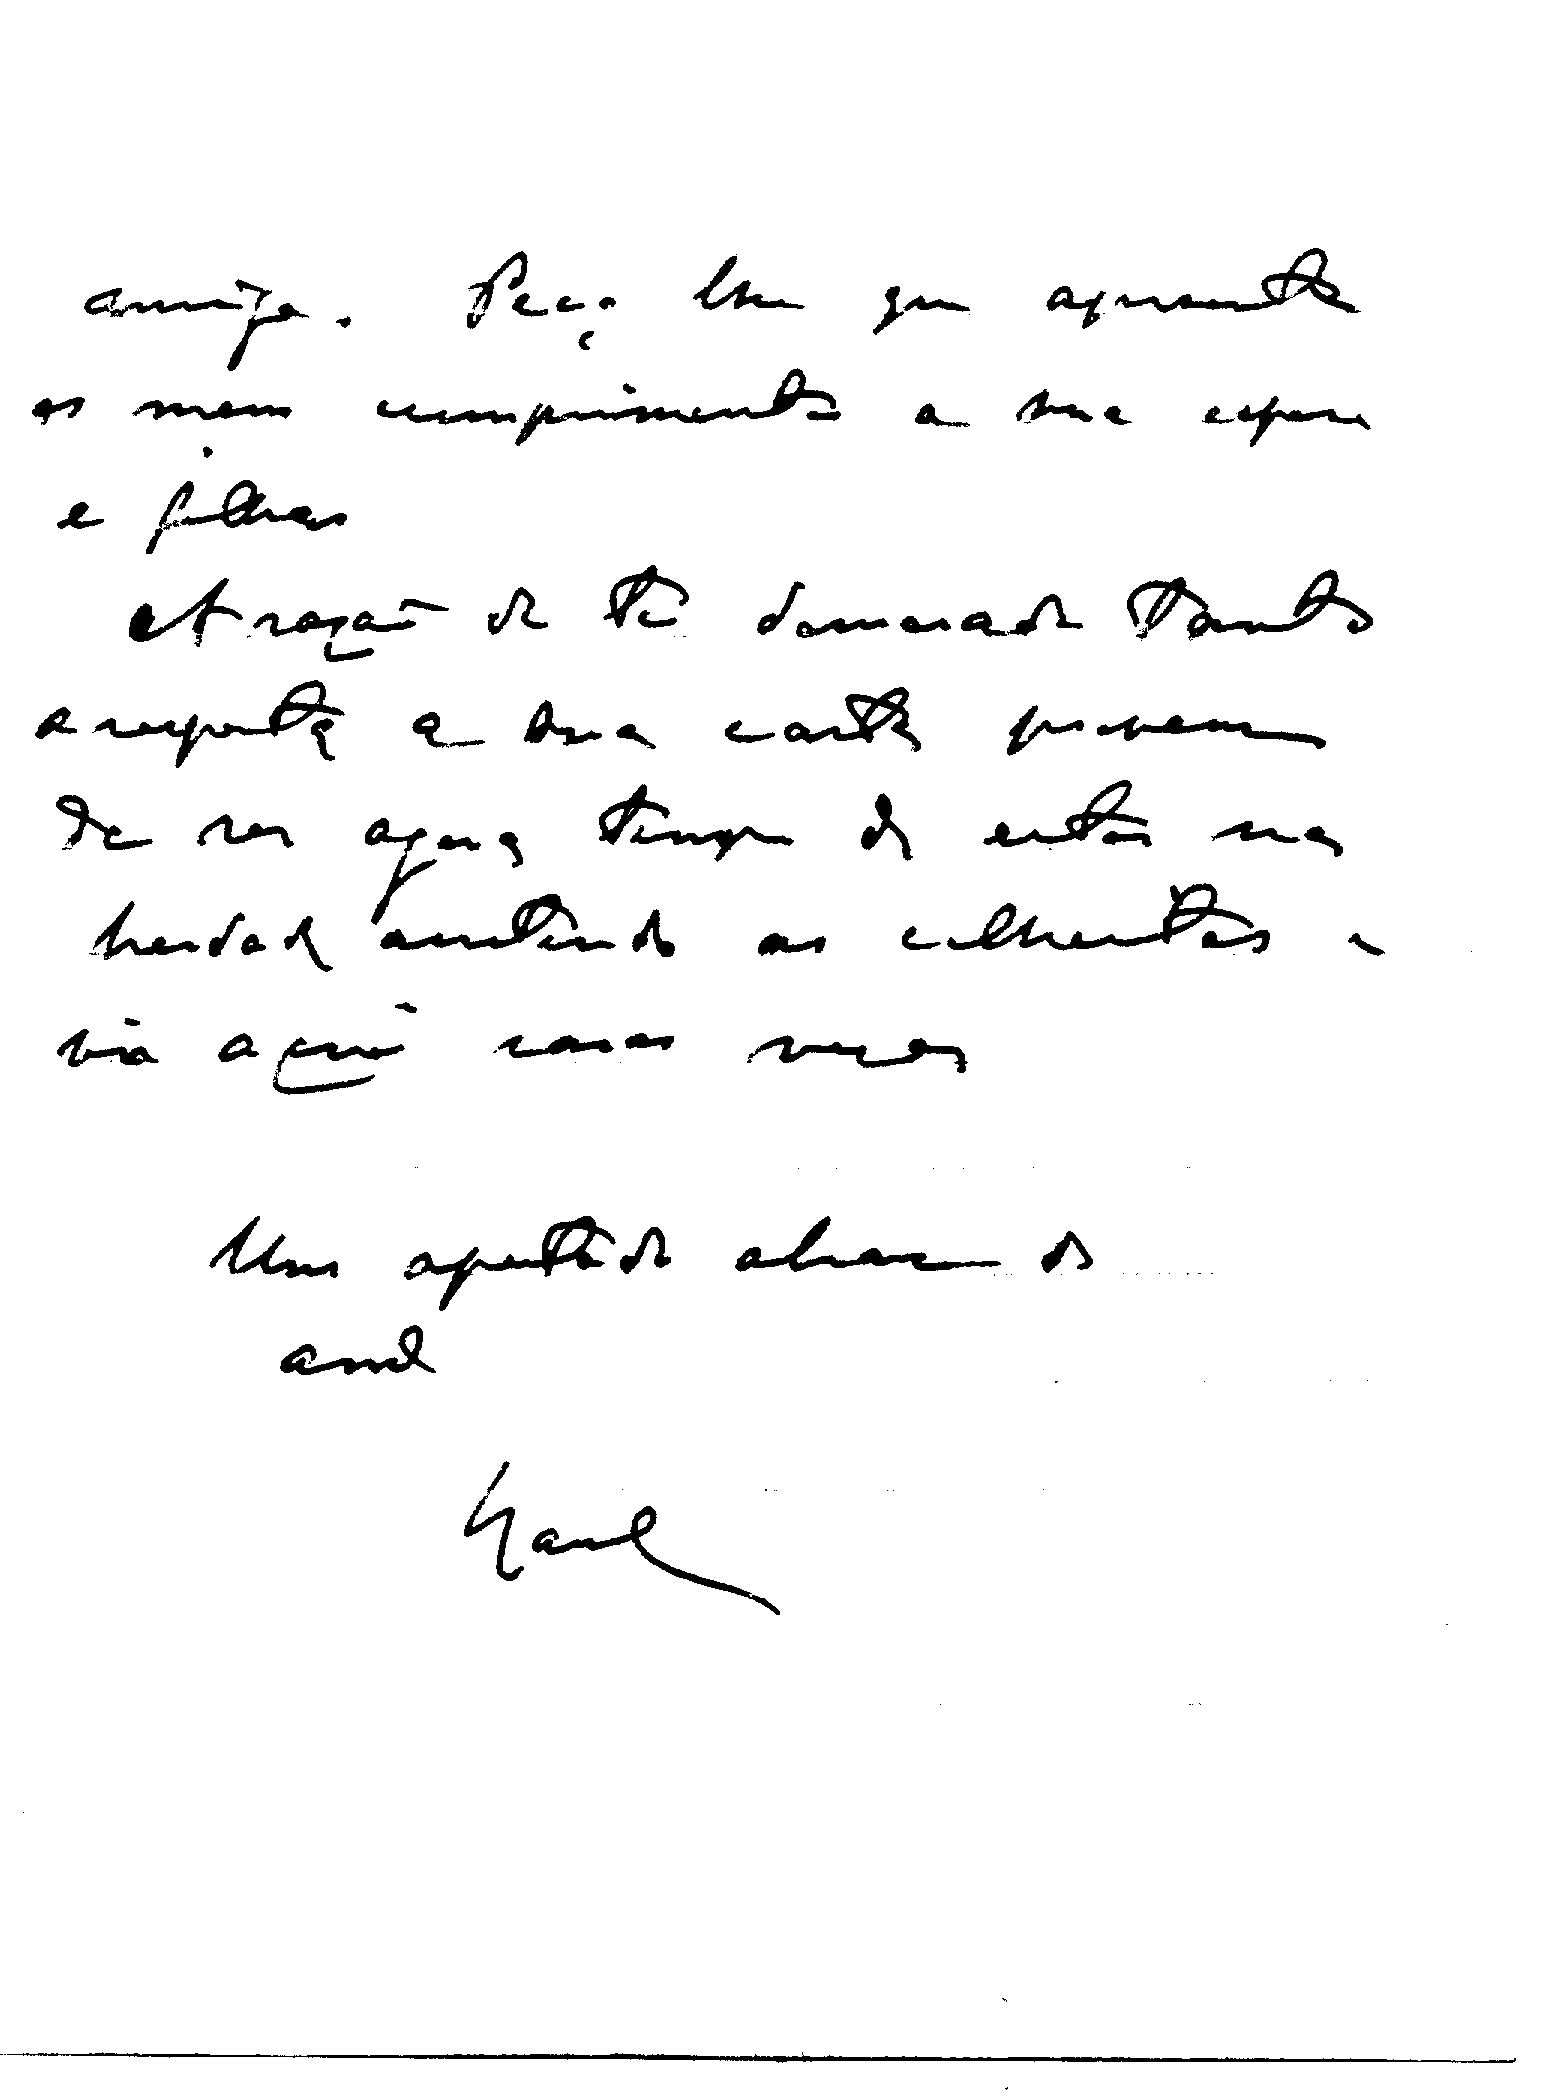 amigo. Peço lhe que apresente
os meus cumprimentos a sua esposa
e filhas
A razão de ter demorado tanto
a resposta a sua carta provem
de ser agora tempo de estar na
herdade assistindo as colheitas e
vir aqui raras vezes
Um apertado abraço do
amº
Raul